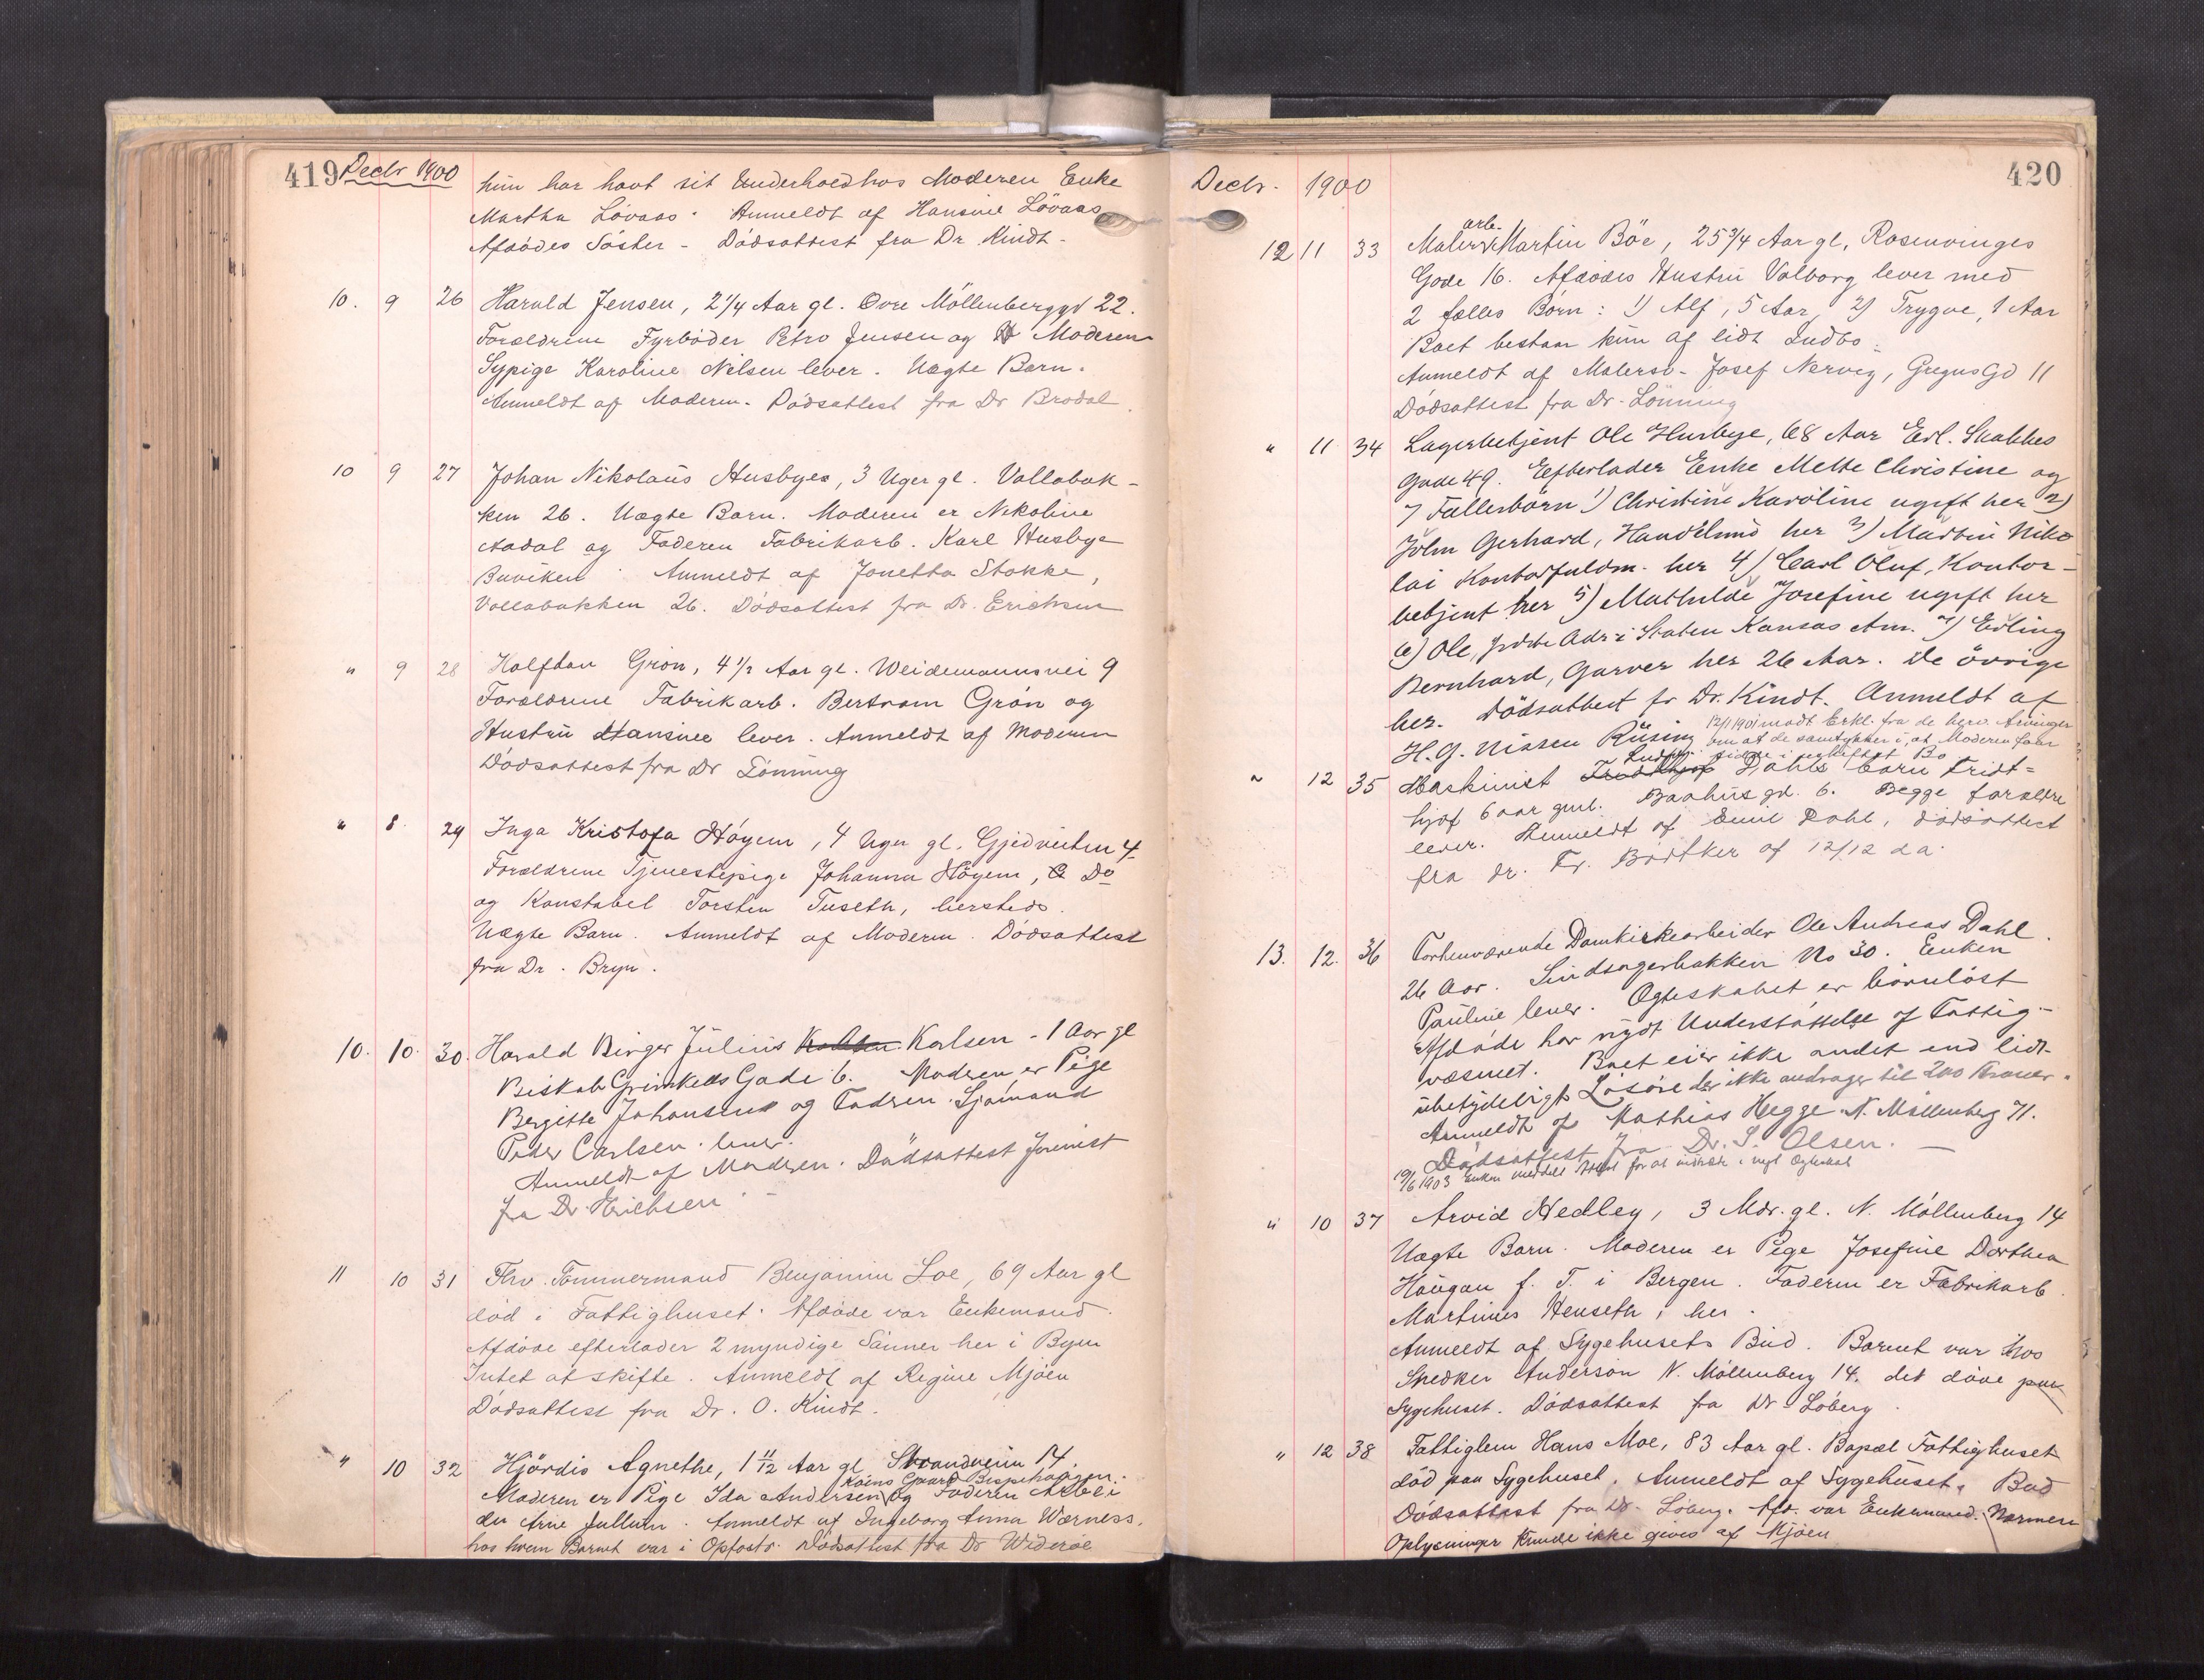 419 Decbr 1900
hun har havt sit Underhold hos Moderen Enke
Martha Lövaas. Anmeldt af Hansine Lövaas
Afdödes Söster - Dödsattest fra Dr Kindt -
10. 9 26 Harald Jensen, 2 1/4 Aar gl. Övre Möllenberggd 22.
Forældrene Fyrböder Petro Jensen og Moderen
Sypige Karoline Nilsen lever. Uægte Barn.
Anmeldt af Moderen. Dödsattest fra Dr Brodal
10 9 27 Johan Nikolaus Husbye, 3 Uger gl. Vollabak-
ken 26. Uægte Barn. Moderen er Nekoline
Aadal og Faderen Fabrikarb. Karl Husbye
Buviken. Anmeldt af Jonetta Stokke,
Vollabakken 26. Dödsattest fra Dr. Erichsen
" 9 28 Halfdan Grön, 4 1/2 Aar gl. Weidemannsvei 9
Forældrene Fabrikarb. Bertram Grön og
Hustru Hansine lever. Anmeldt af Moderen
Dödsattest fra Dr Lönning
" 8. 29 Inga Kristofa Höyem, 4 Uger gl. Gjedveiten 4
Forældrene Tjenestepige Johanna Höyem, Do
og Konstabel Torsten Tuseth, hersteds.
Uægte Barn. Anmeldt af Moderen. Dödsattest
fra Dr. Bryn.
10. 10. 30. Harald Birger Julius Karlsen - 1 Aar gl
Biskob Grimkells Gade 6. Modren er Pige
Bergitte Johansen og Fadren Sjömand
Peder Carlsen lever.
Anmeldt af Modren. Dödsattest
fra Dr. Erichsen -
11 10 31 Fhv. Tömmermand Benjamin Loe, 69 Aar gl
död i Fattighuset. Afdöde var Enkemand.
Afdöde efterlader 2 myndige Sönner her i Byen
Intet at skifte. Anmeldt af Regine Mjöen
Dödsattest fra Dr. O. Kindt.
" 10 32 Hjördis Agnethe, 1 11/12 Aar gl Strandveien 14.
Gaard Bispehaugen.
Moderen er Pige Ida Andersen og Faderen Arbei
der Arne Jullum. Anmeldt af Ingeborg Anna Wærness.
hos hvem Barnet var i Opfostr. Dödsattest fra Dr Wideröe
Decbr. 1900 420
arb.
12 11 33 Maler Martin Böe, 25 3/4 Aar gl, Rosenvinges
Gade 16. Afdödes Hustru Valborg lever med
2 fælles Börn: 1) Alf, 5 Aar, 2) Trygve, 1 Aar
Boet bestaar kun af lidt Indbo.
Anmeldt af Malersv. Josef Nervig, Gregusgd 11
Dödsattest fra Dr. Lönning
" 11 34 Lagerbetjent Ole Husbye, 68 Aar Erl. Skakkes
gade 49. Efterlader Enke Mette Christine og
7 Fællesbörn 1) Christine Karoline ugift her 2)
John Gerhard, Handelsmd her 3) Martin Niko
lai Kontorfuldm. her 4) Carl Oluf, Kontor-
betjent her 5) Mathilde Josefine ugift her
6) Ole, Adr i Staten Kansas Am. 7) Erling
Bernhard, Garver her 26 Aar. De övrige
her. Dödsattest fr Dr. Kindt. Anmeldt af
H. G. Nissen Rüsing
12/1 1901 modt Erkl. fra de herv. Arvinger
om at de samtykker i, at Moderen faar
sidde i uskiftet Bo
~ 12 35 Maskinist Dahls barn Fridt=
hjof 6 aar gml. Baahusgd. 6. Begge forældre
lever. Anmeldt af Emil Dahl, dödsattest
fra Dr. Fr. Bödtker af 12/12 d.a.
13. 12. 36 Forhenværende Domkirkearbeider Ole Andreas Dahl.
26 Aar. Sindsagerbakken No 30. Enken
Pauline lever. Ægteskabet er börnlöst
Afdöde har nydt Understöttelse af Fattig-
væsenet. Boet eier ikke andet end lidt
ubetydeligt Lösöre der ikke andrager til 200 Kroner.
Anmeldt af Mathias Hegge N. Möllenberg 71.
Dödsattest fra Dr. S. Olsen. -
19/6 1903 Enken meddelt Attest for at indtræde i nyt Ægteskab
" 10 37 Arvid Hedley, 3 Mdr. gl. N. Möllenberg 14
Uægte Barn. Moderen er Pige Josefine Dorthea
Haugan f. T. i Bergen. Faderen er Fabrikarb.
Martinus Henseth, her.
Anmeldt af Sygehusets Bud. Barnet var hos
Snedker Anderson N. Möllenberg 14. det döde paa
Sygehuset. Dödsattest fra Dr. Löberg.
" 12 38 Fattiglem Hans Moe, 83 Aar gl. Bopæl Fattighuset
död paa Sygehuset. Anmeldt af Sygehusets Bud
Dödsattest fra Dr. Löberg. Afd. var Enkemand. Nærmere
Oplysninger kunde ikke gives af Mjöen